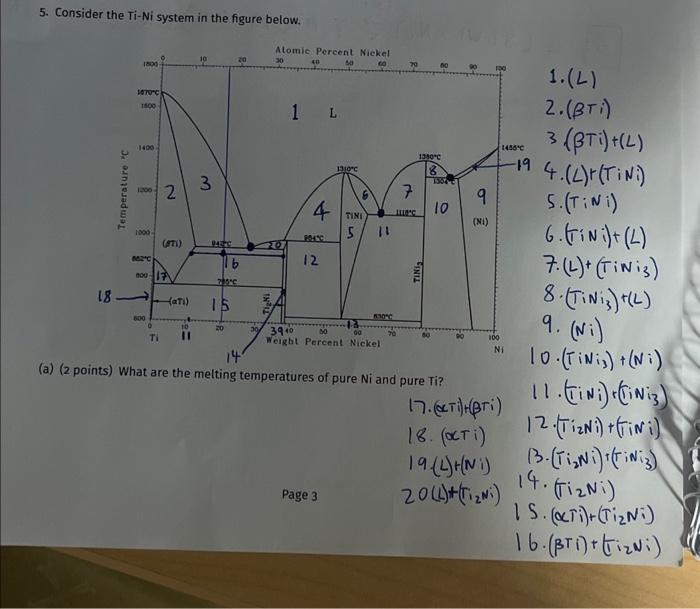 5. Consider the Ti-Ni system in the figure below.
Atomic Percent Nickel
0 10 20 30 40 50 60 70 80 90 100
1800
1670°C
1600
1400
1200
1000
882°C
800
600
Temperature °C
1 L
2
3
4
TiNi
5
6
7
8
9
(Ni)
10
11
12
13
14
15
16
17
18
19
20
1455°C
1380°C
1310°C
1304°C
1118°C
984°C
942°C
765°C
630°C
(βTi)
(αTi)
Ti₂Ni
TiNi₃
0 10 20 30 40 50 60 70 80 90 100
11
39
Ti
Weight Percent Nickel
Ni
1.(L)
2.(βTi)
3 (βTi)+(L)
4.(L)+(TiNi)
5.(TiNi)
6.(TiNi)+(L)
7.(L)+(TiNi3)
8.(TiNi3)+(L)
9. (Ni)
10.(TiNi3)+(Ni)
11.(TiNi)+(TiNi3)
12.(Ti2Ni)+(TiNi)
13.(Ti2Ni)+(TiNi3)
14. (Ti2Ni)
15.(αTi)+(Ti2Ni)
16.(βTi)+(Ti2Ni)
17.(αTi)+(βTi)
18. (αTi)
19.(L)+(Ni)
20(L)+(Ti2Ni)
(a) (2 points) What are the melting temperatures of pure Ni and pure Ti?
Page 3